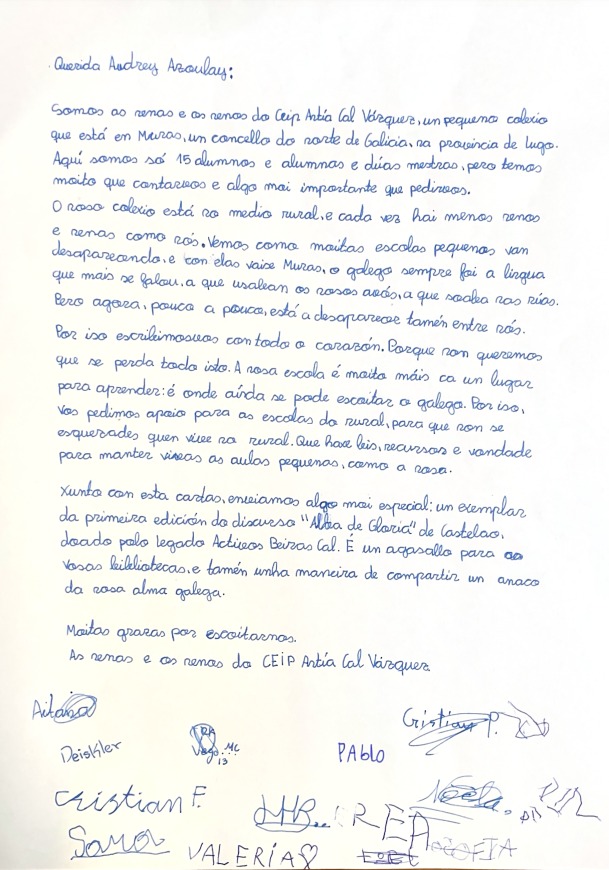 Querida Audrey Azoulay:
Somos as nenas e os nenos do Ceip Antía Cal Vázquez, un pequeno colexio
que está en Muras, un concello do norte de Galicia, na provincia de Lugo.
Aquí somos só 15 alumnos e alumnas e dúas mestras, pero temos
moito que contarvos e algo moi importante que pedirvos.
O noso colexio está no medio rural, e cada vez hai menos nenos
e nenas como nós. Vemos como moitas escolas pequenas van
desaparecendo, e con elas vaise Muras, o galego sempre foi a lingua
que máis se falou, a que usaban os nosos avós, a que soaba nas rúas.
Pero agora, pouco a pouco, está a desaparecer tamén entre nós.
Por iso escribimosvos con todo o corazón. Porque non queremos
que se perda todo isto. A nosa escola é moito máis ca un lugar
para aprender: é onde aínda se pode escoitar o galego. Por iso,
vos pedimos apoio para as escolas do rural, para que non se
esquezades quen vive no rural. Que haxe leis, recursos e vondade
para manter vivas as aulas pequenas, como a nosa.
Xunto con esta cartas, enviamos algo moi especial: un exemplar
da primeira edición do discurso "Alba de Gloria" de Castelao,
doado polo legado Activos Beiras Cal. É un agasallo para as
vosas bibliotecas, e tamén unha maneira de compartir un anaco
da nosa alma galega.
Moitas grazas por escoitarnos.
As nenas e os nenos do CEIP Antía Cal Vázquez
Aitana
Cristian P.
Deiskler
PAblo
Cristian F.
Noela.
Sara
VALERIA